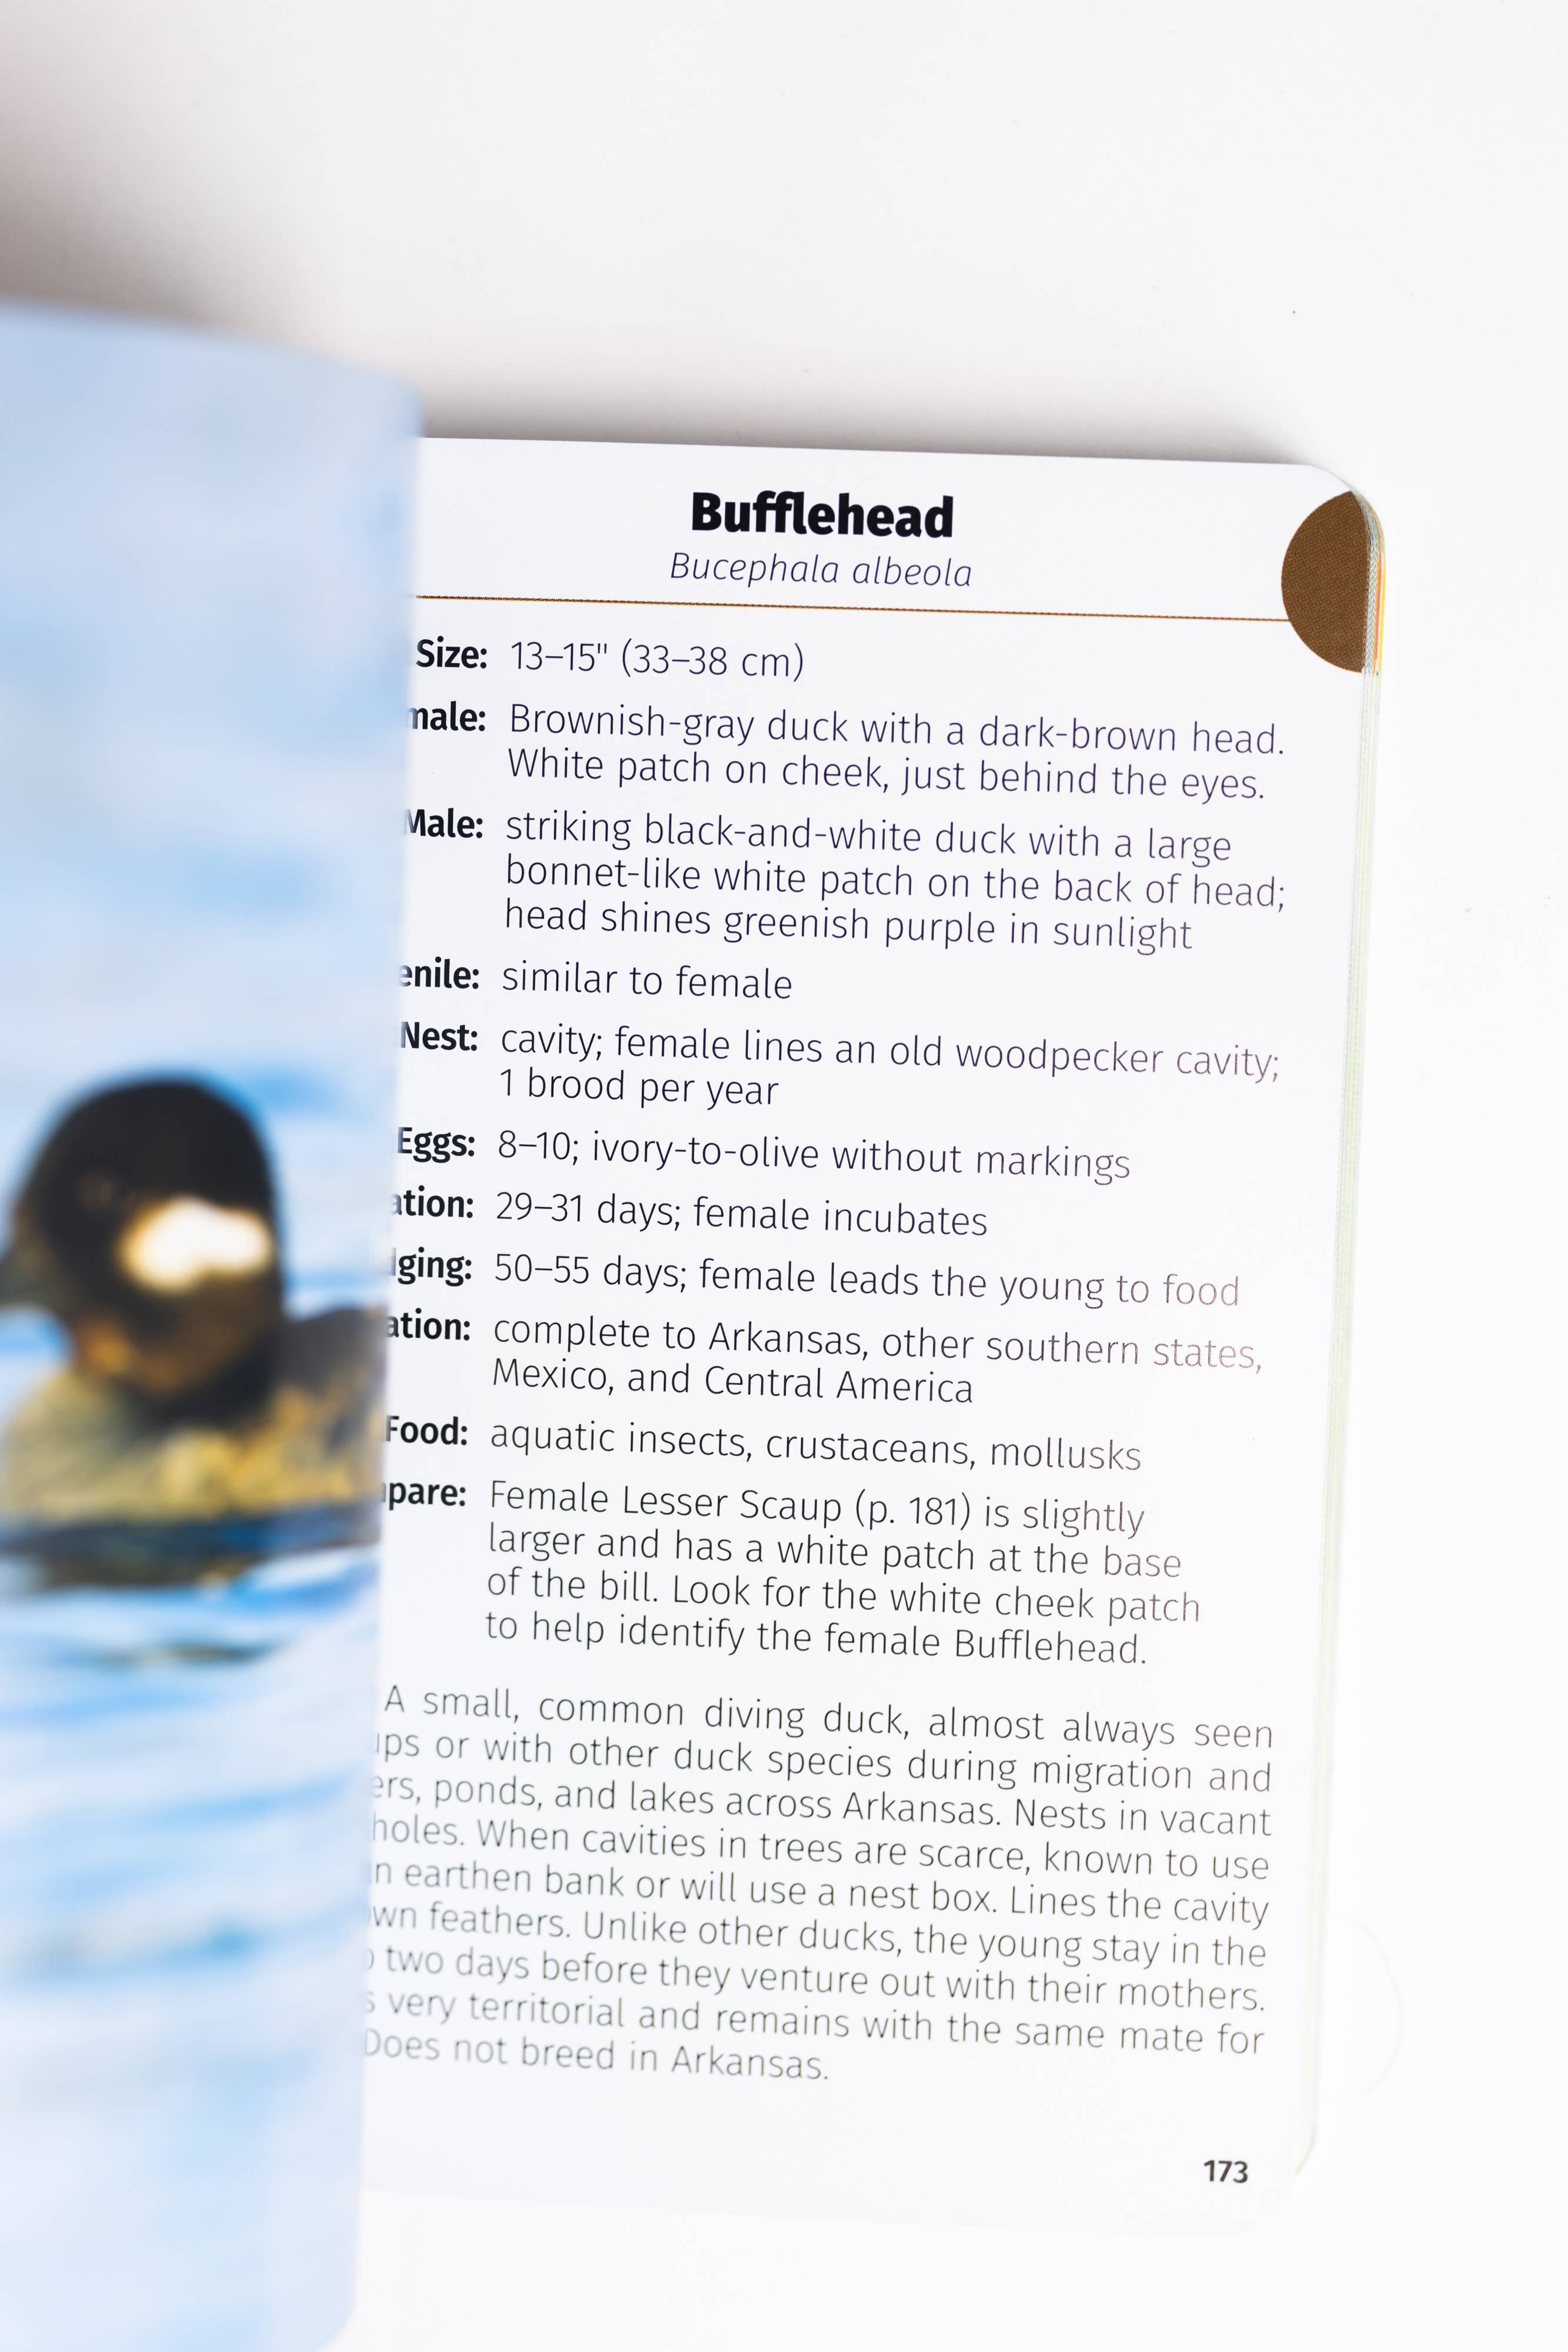 Bufflehead
Bucephala albeola
Size: 13–15" (33–38 cm)
male: Brownish-gray duck with a dark-brown head.
White patch on cheek, just behind the eyes.
Male: striking black-and-white duck with a large
bonnet-like white patch on the back of head;
head shines greenish purple in sunlight
enile: similar to female
Nest: cavity; female lines an old woodpecker cavity;
1 brood per year
Eggs: 8–10; ivory-to-olive without markings
ation: 29–31 days; female incubates
dging: 50–55 days; female leads the young to food
ation: complete to Arkansas, other southern states,
Mexico, and Central America
Food: aquatic insects, crustaceans, mollusks
pare: Female Lesser Scaup (p. 181) is slightly
larger and has a white patch at the base
of the bill. Look for the white cheek patch
to help identify the female Bufflehead.
A small, common diving duck, almost always seen
ups or with other duck species during migration and
ers, ponds, and lakes across Arkansas. Nests in vacant
holes. When cavities in trees are scarce, known to use
n earthen bank or will use a nest box. Lines the cavity
wn feathers. Unlike other ducks, the young stay in the
two days before they venture out with their mothers.
s very territorial and remains with the same mate for
Does not breed in Arkansas.
173